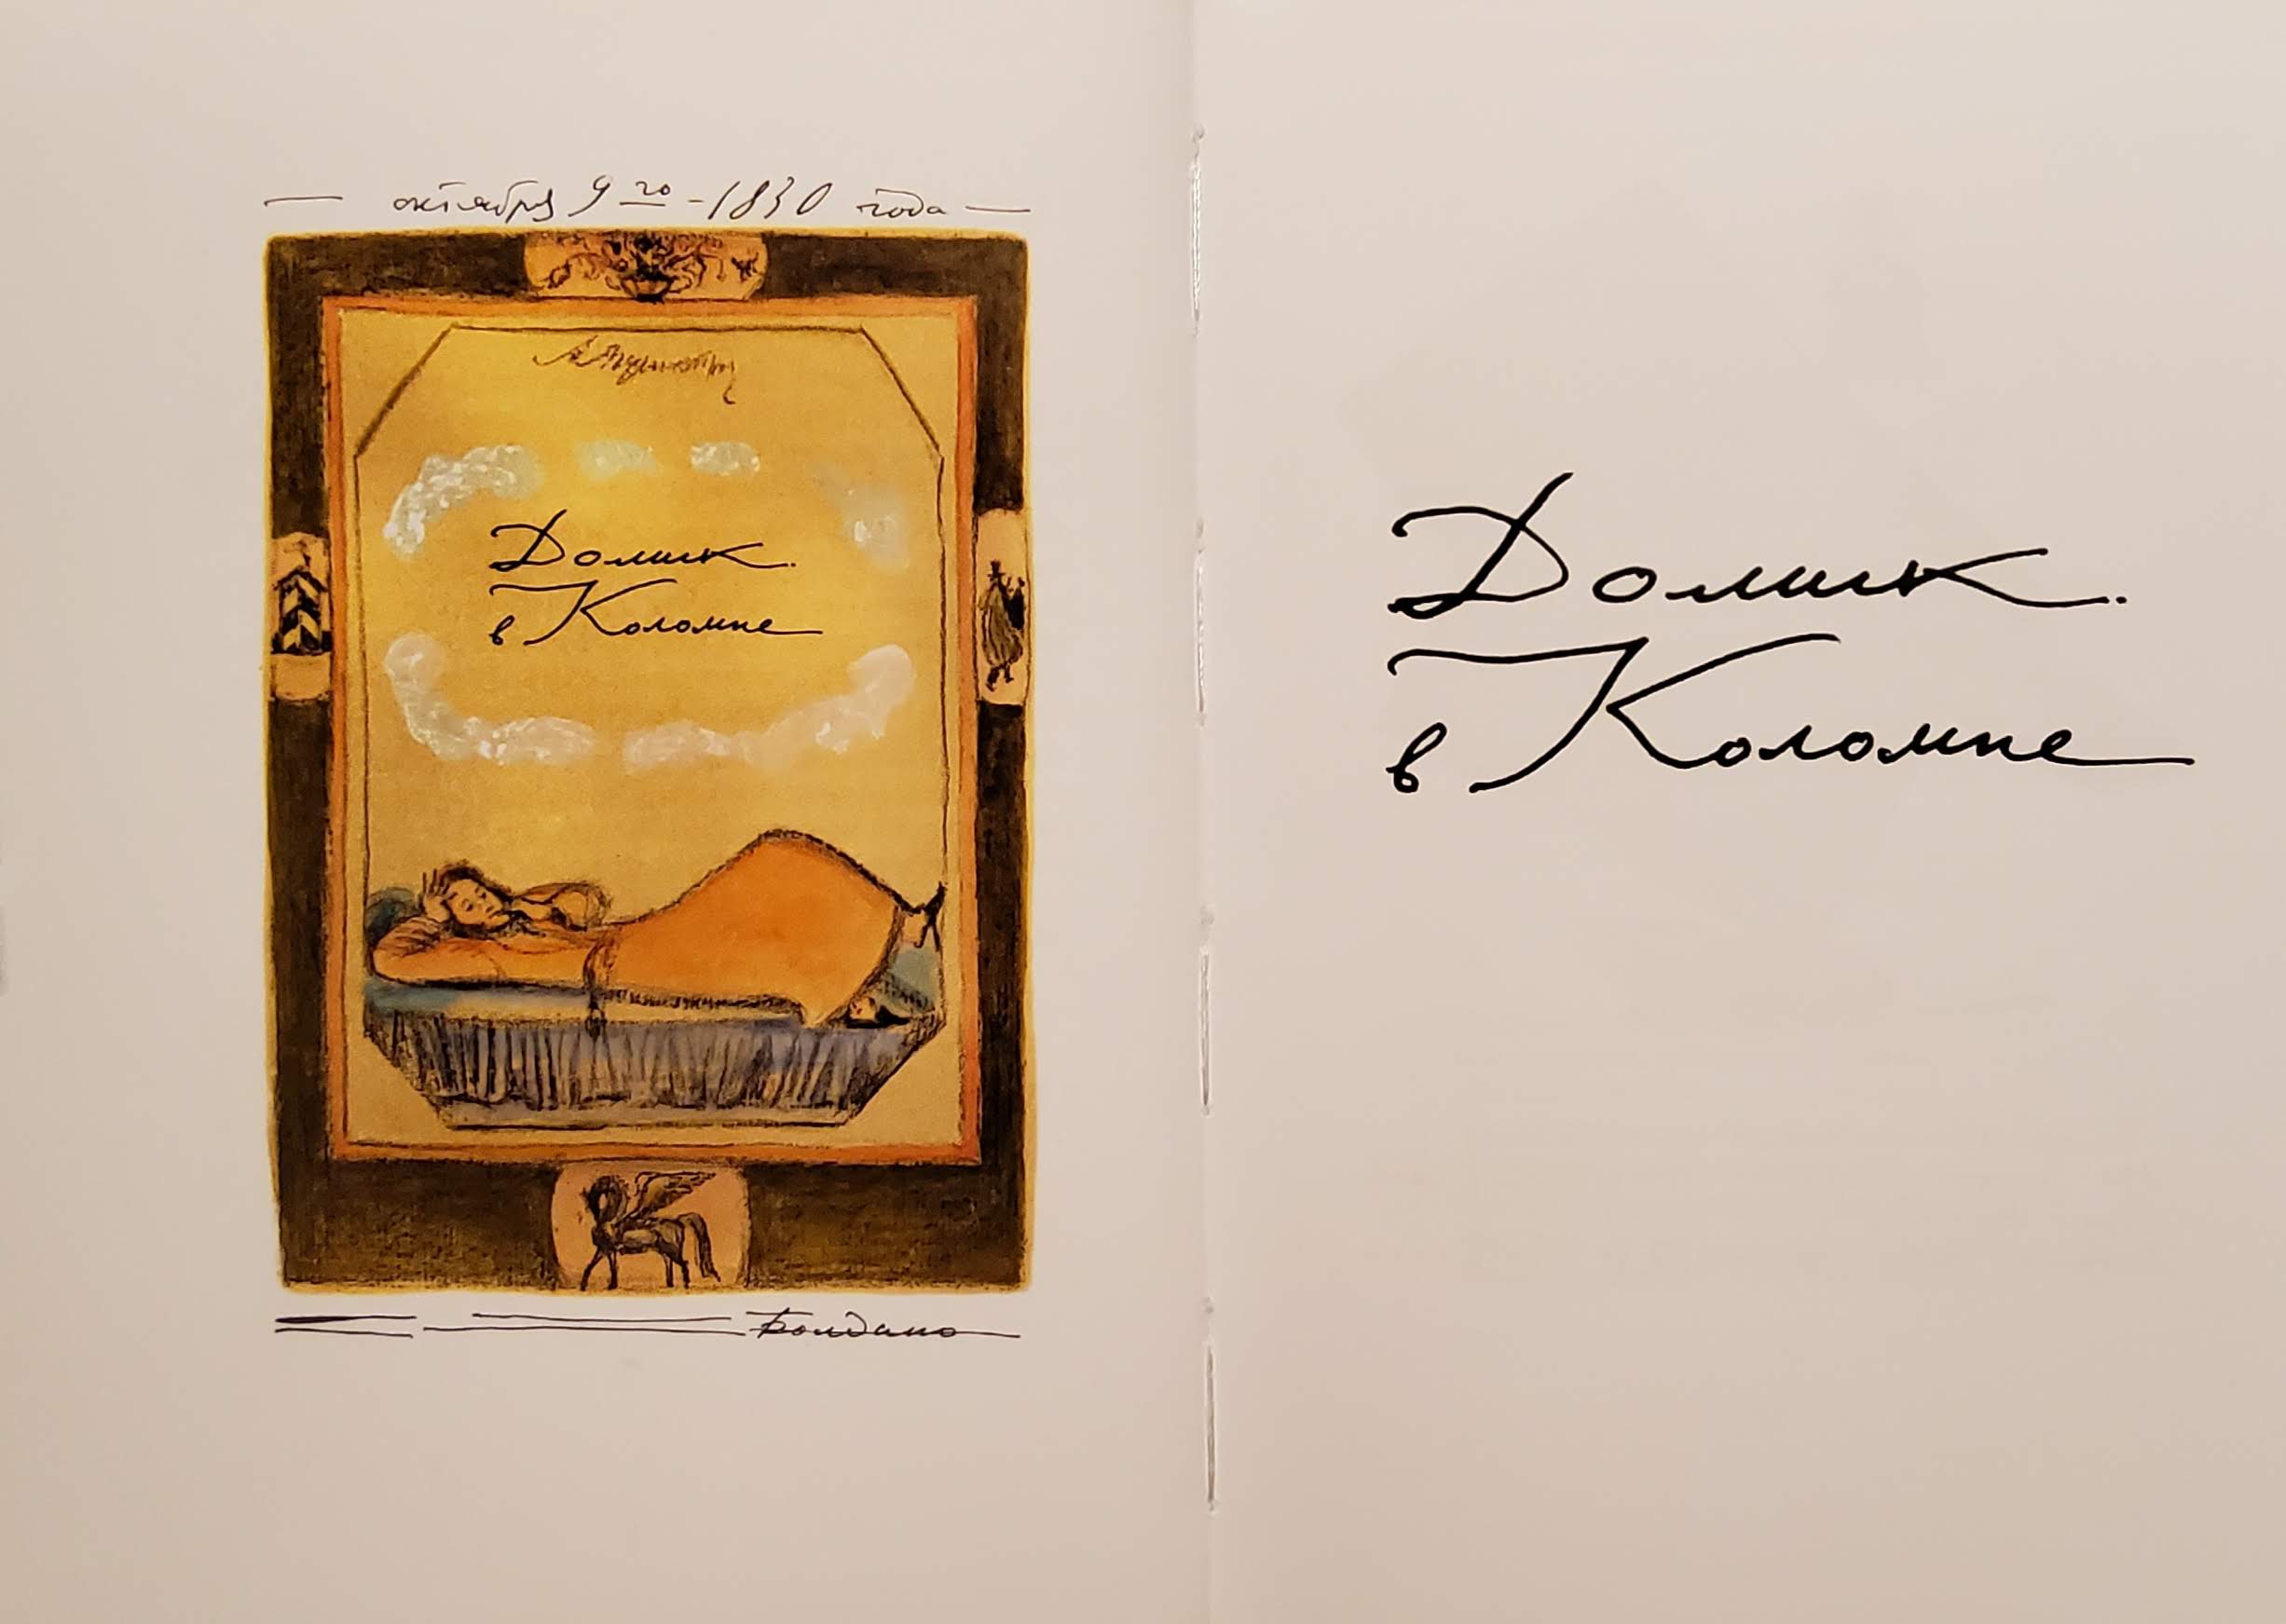 — октября 9го - 1830 года —
А. Пушкинъ
Домик.
в Коломне
Болдино
Домик.
в Коломне